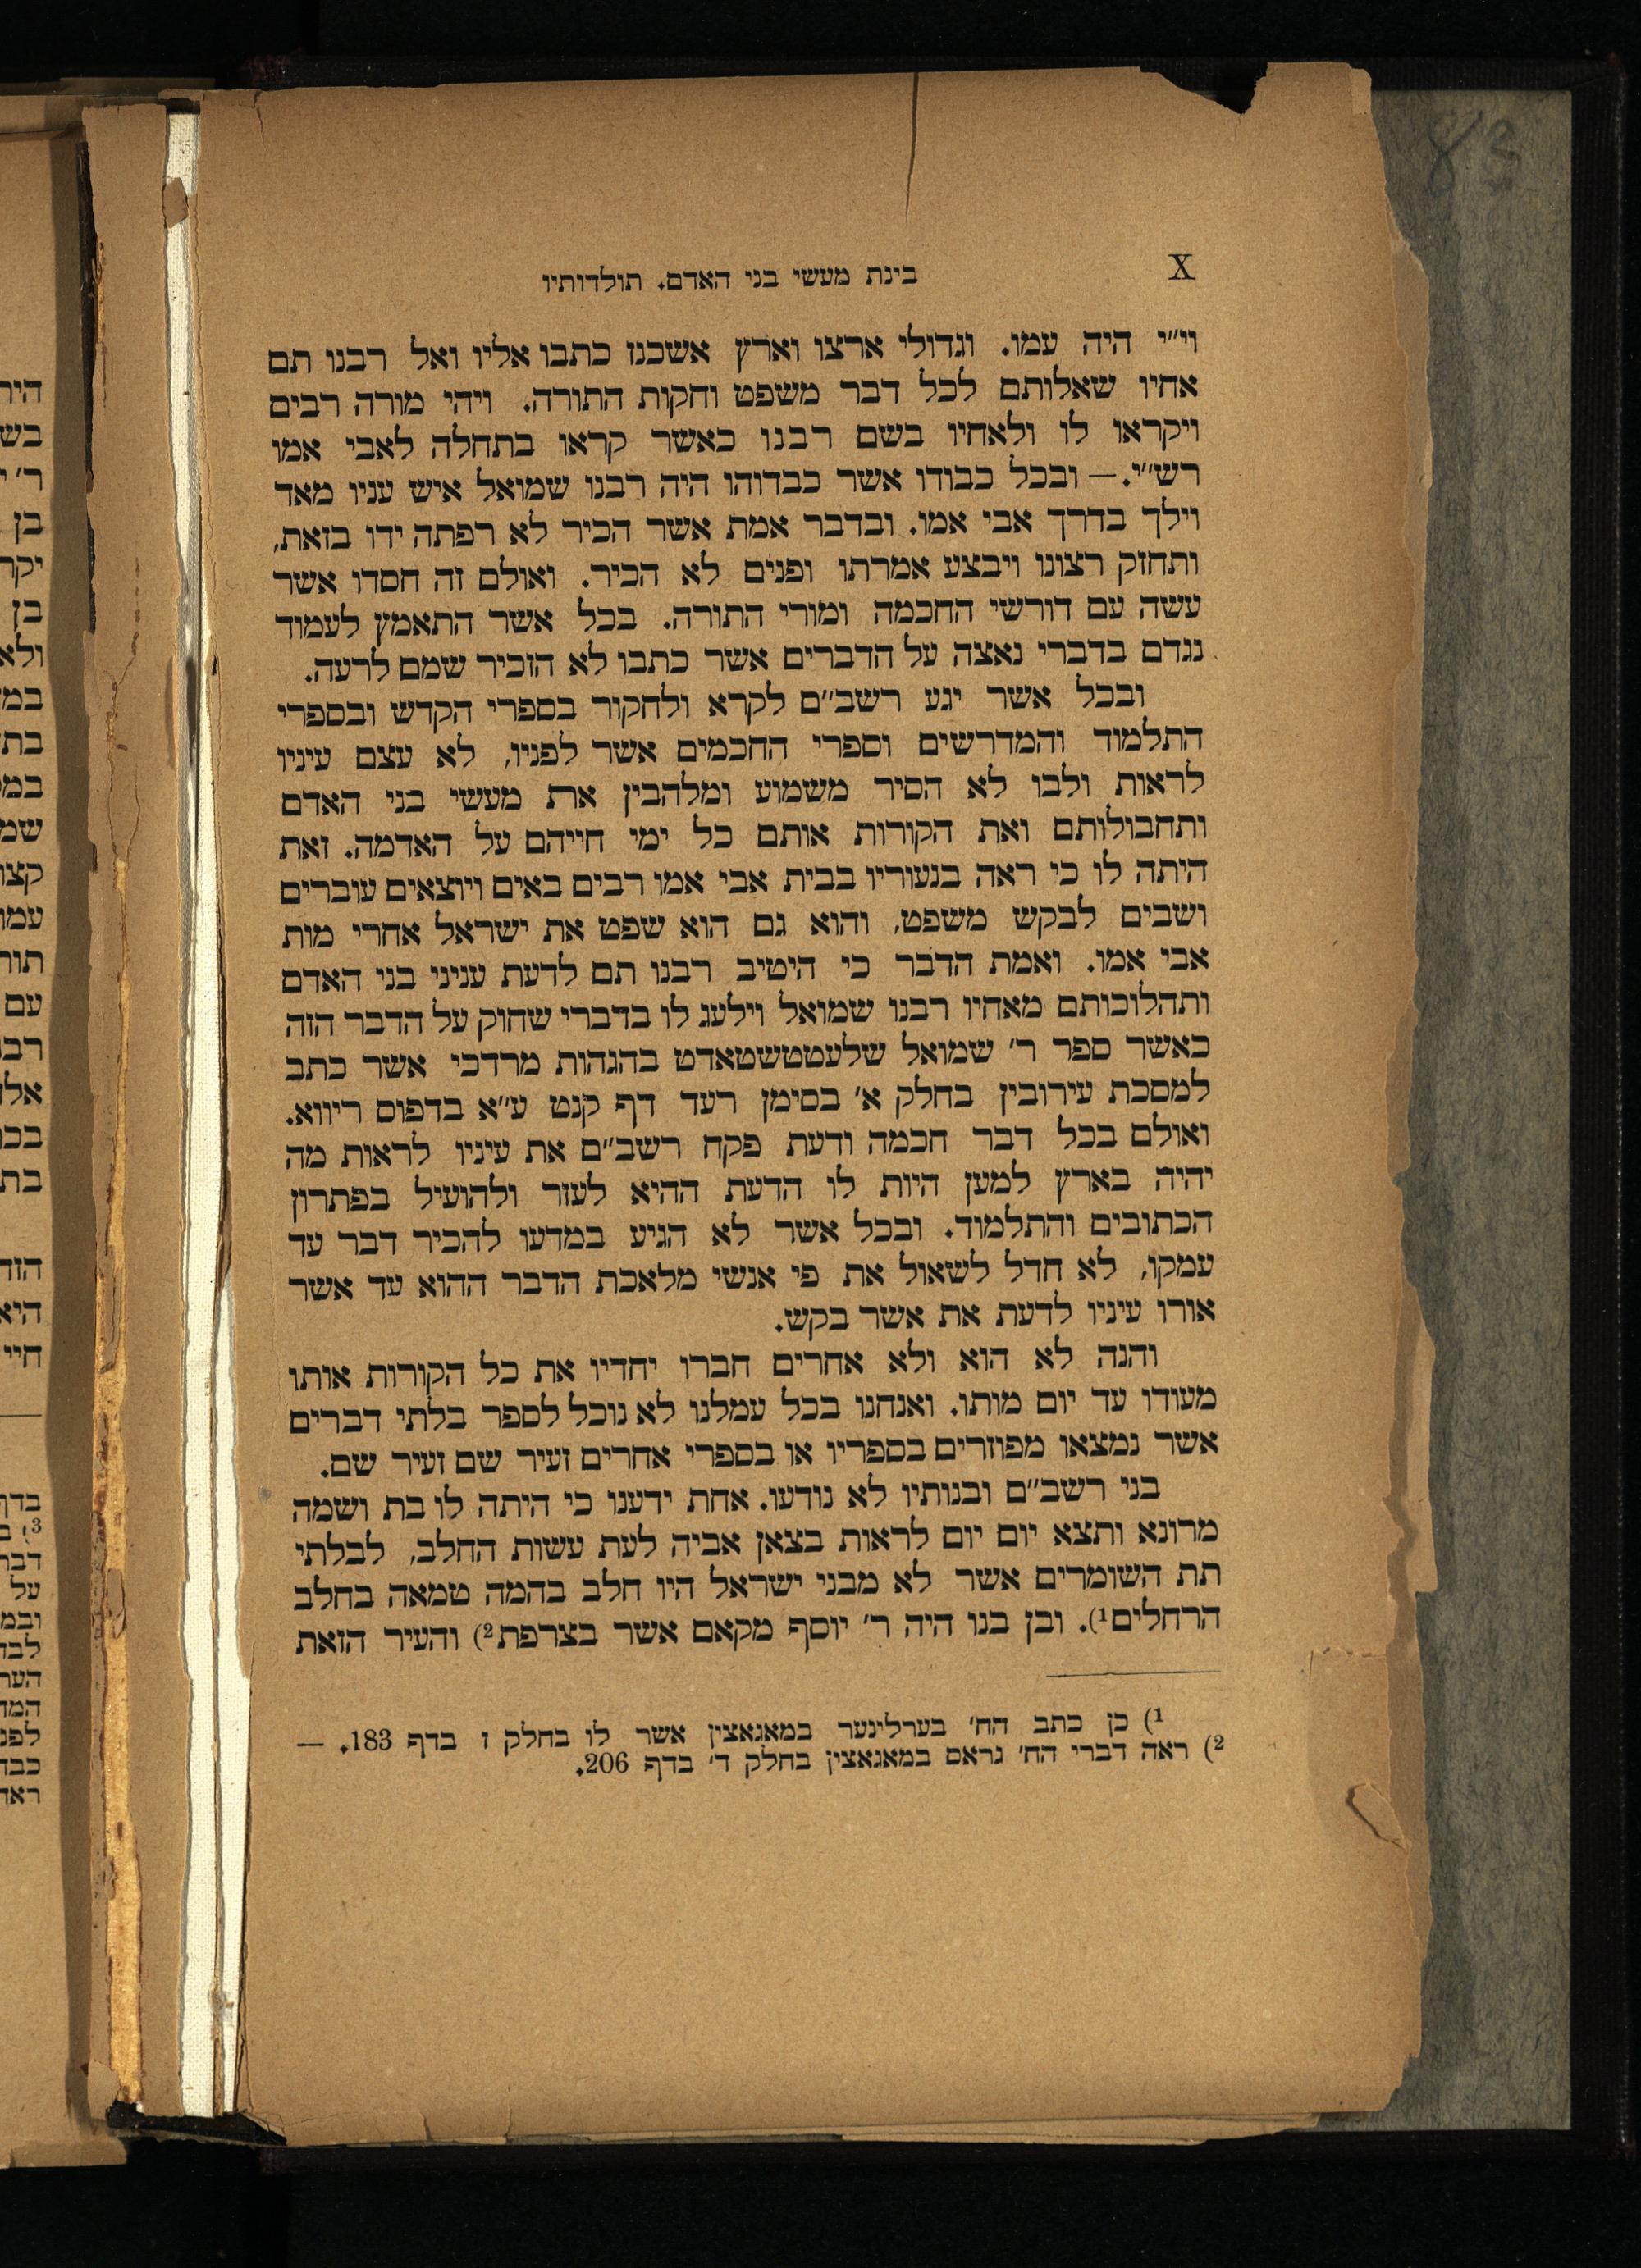 X
בינת מעשי בני האדם. תולדותיו
וי״י היה עמו. וגדולי ארצו וארץ אשכנז כתבו אליו ואל רבנו תם
אחיו שאלותם לכל דבר משפט וחקות התורה. ויהי מורה רבים
ויקראו לו ולאחיו בשם רבנו כאשר קראו בתחלה לאבי אמו
רש״י. — ובכל כבודו אשר כבדוהו היה רבנו שמואל איש עניו מאד
וילך בדרך אבי אמו. ובדבר אמת אשר הכיר לא רפתה ידו בזאת,
ותחזק רצונו ויבצע אמרתו ופנים לא הכיר. ואולם זה חסדו אשר
עשה עם דורשי החכמה ומורי התורה. בכל אשר התאמץ לעמוד
נגדם בדברי נאצה על הדברים אשר כתבו לא הזכיר שמם לרעה.
ובכל אשר יגע רשב״ם לקרא ולחקור בספרי הקדש ובספרי
התלמוד והמדרשים וספרי החכמים אשר לפניו, לא עצם עיניו
לראות ולבו לא הסיר משמוע ומלהבין את מעשי בני האדם
ותחבולותם ואת הקורות אותם כל ימי חייהם על האדמה. זאת
היתה לו כי ראה בנעוריו בבית אבי אמו רבים באים ויוצאים עוברים
ושבים לבקש משפט, והוא גם הוא שפט את ישראל אחרי מות
אבי אמו. ואמת הדבר כי היטיב רבנו תם לדעת עניני בני האדם
ותהלוכותם מאחיו רבנו שמואל וילעג לו בדברי שחוק על הדבר הזה
כאשר ספר ר׳ שמואל שלעטטשטאדט בהגהות מרדכי אשר כתב
למסכת עירובין בחלק א׳ בסימן רעד דף קנט ע״א בדפוס ריווא.
ואולם בכל דבר חכמה ודעת פקח רשב״ם את עיניו לראות מה
יהיה בארץ למען היות לו הדעת ההיא לעזר ולהועיל בפתרון
הכתובים והתלמוד. ובכל אשר לא הגיע במדעו להכיר דבר עד
עמקו, לא חדל לשאול את פי אנשי מלאכת הדבר ההוא עד אשר
אורו עיניו לדעת את אשר בקש.
והנה לא הוא ולא אחרים חברו יחדיו את כל הקורות אותו
מעודו עד יום מותו. ואנחנו בכל עמלנו לא נוכל לספר בלתי דברים
אשר נמצאו מפוזרים בספריו או בספרי אחרים זעיר שם זעיר שם.
בני רשב״ם ובנותיו לא נודעו. אחת ידענו כי היתה לו בת ושמה
מרונא ותצא יום יום לראות בצאן אביה לעת עשות החלב, לבלתי
תת השומרים אשר לא מבני ישראל היו חלב בהמה טמאה בחלב
הרחלים¹). ובן בנו היה ר׳ יוסף מקאם אשר בצרפת²) והעיר הזאת
¹) כן כתב הח׳ בערלינער במאגאצין אשר לו בחלק ז בדף 183. —
²) ראה דברי הח׳ גראם במאגאצין בחלק ד׳ בדף 206.